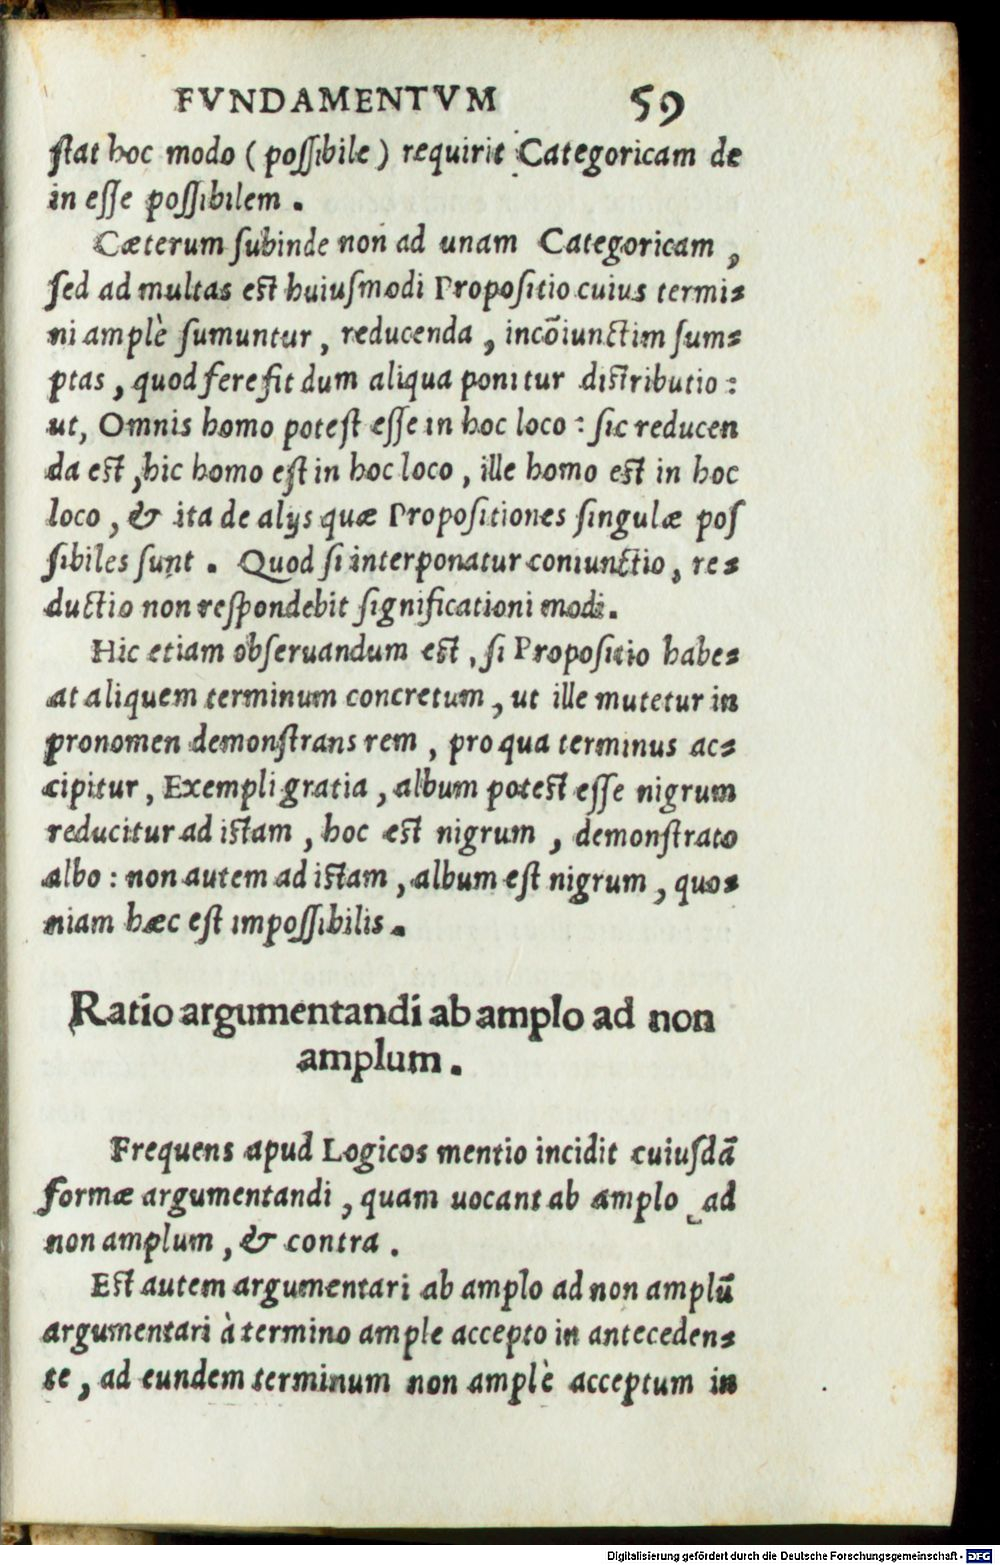 FVNDAMENTVM 59
ſtat hoc modo (poſſibile) requirit Categoricam de
in eſſe poſſibilem.
Cæterum ſubinde non ad unam Categoricam,
ſed ad multas eſt huiuſmodi Propoſitio cuius termi⸗
ni amplè ſumuntur, reducenda, incõiunctim ſum⸗
ptas, quod fere fit dum aliqua ponitur diſtributio:
ut, Omnis homo poteſt eſſe in hoc loco: ſic reducen
da eſt, hic homo eſt in hoc loco, ille homo eſt in hoc
loco, & ita de alijs quæ Propoſitiones ſingulæ poſ
ſibiles ſunt. Quod ſi interponatur coniunctio, re⸗
ductio non reſpondebit ſignificationi modi.
Hic etiam obſeruandum eſt, ſi Propoſitio habe⸗
at aliquem terminum concretum, ut ille mutetur in
pronomen demonſtrans rem, pro qua terminus ac⸗
cipitur, Exempli gratia, album poteſt eſſe nigrum
reducitur ad iſtam, hoc eſt nigrum, demonſtrato
albo: non autem ad iſtam, album eſt nigrum, quo⸗
niam hæc eſt impoſſibilis.
Ratio argumentandi ab amplo ad non
amplum.
Frequens apud Logicos mentio incidit cuiuſdã
formæ argumentandi, quam uocant ab amplo ad
non amplum, & contra.
Eſt autem argumentari ab amplo ad non amplũ
argumentari à termino ample accepto in anteceden⸗
te, ad eundem terminum non amplè acceptum in
Digitalisierung gefördert durch die Deutsche Forschungsgemeinschaft - DFG